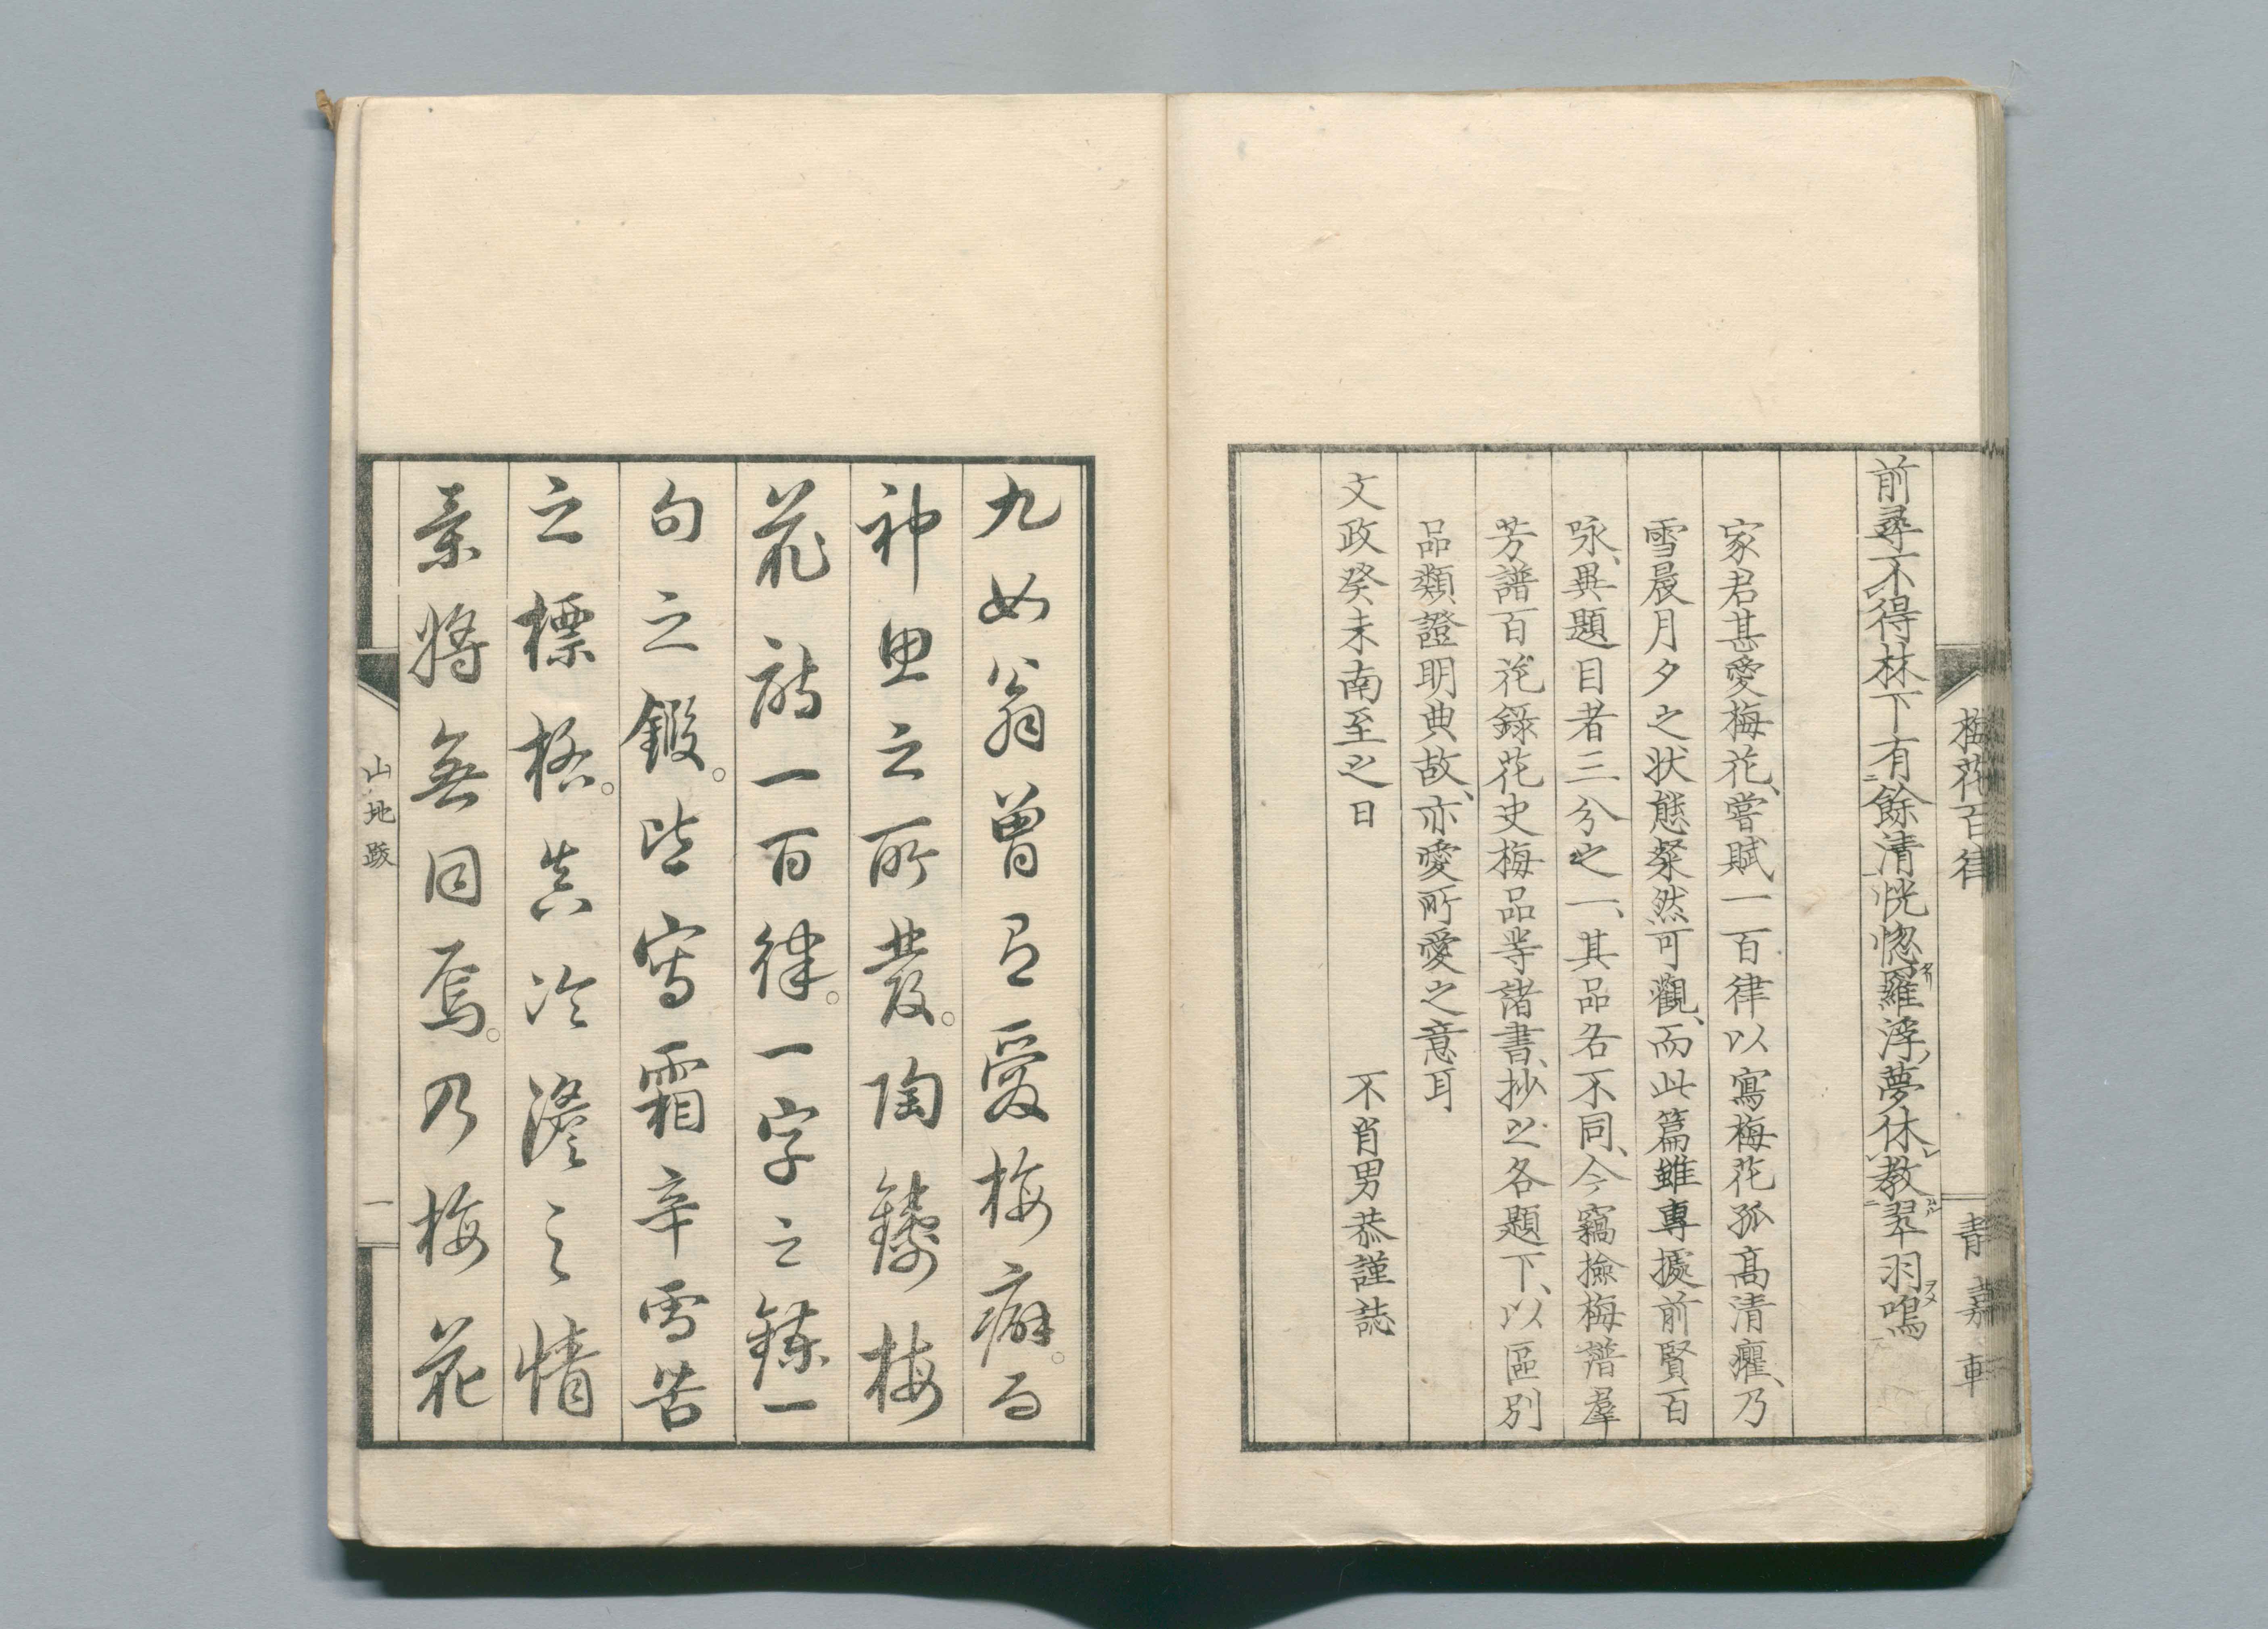 梅花百律
青嘉軒
前尋不得林下有餘清恍惚羅浮夢休教翠羽鳴
家君甚愛梅花、嘗賦一百律以寫梅花孤高清癯、乃
雪晨月夕之狀態粲然可觀、而此篇雖專據前賢百
咏、異題目者三分之一、其品名不同、今竊撿梅譜羣
芳譜百花錄花史梅品等諸書、抄之各題下、以區別
品類證明典故、亦愛所愛之意耳
文政癸未南至之日
不肖男恭謹誌
九如翁曾有愛梅癖。而
神思之所發。陶鑄梅
花為一百律。一字之鍊一
句之鍛。皆寫霜辛雪苦
之標格。其冷澹之情
景將無同焉。乃梅花
山地跋
一